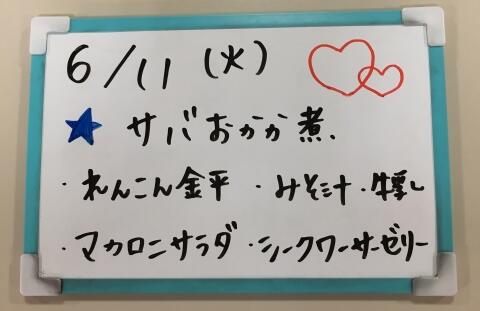 6/11(火)
★ サバおかか煮.
・れんこん金平 ・みそ汁・牛乳
・マカロニサラダ ・シークワーサーゼリー